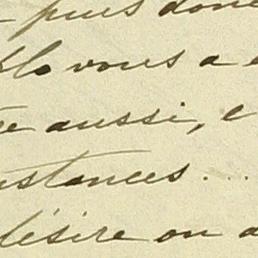 puis donc
vous a
aussi, c
stances...
désire on a